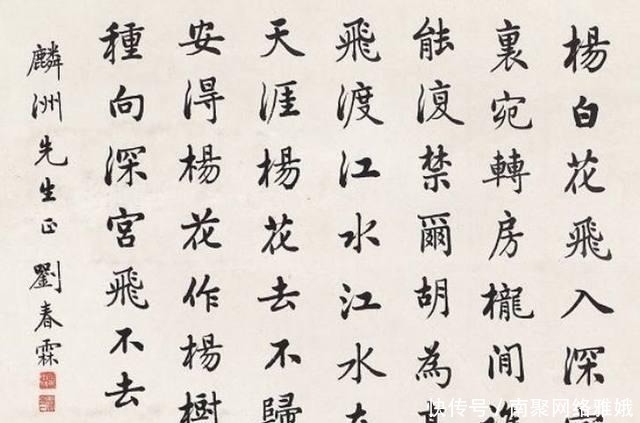 楊白花飛入深
裏宛轉房櫳間
能復禁爾胡為
飛渡江水江水
天涯楊花去不歸
安得楊花作楊樹
種向深宮飛不去
麟洲先生正 劉春霖
快传号/南聚网络雅娥